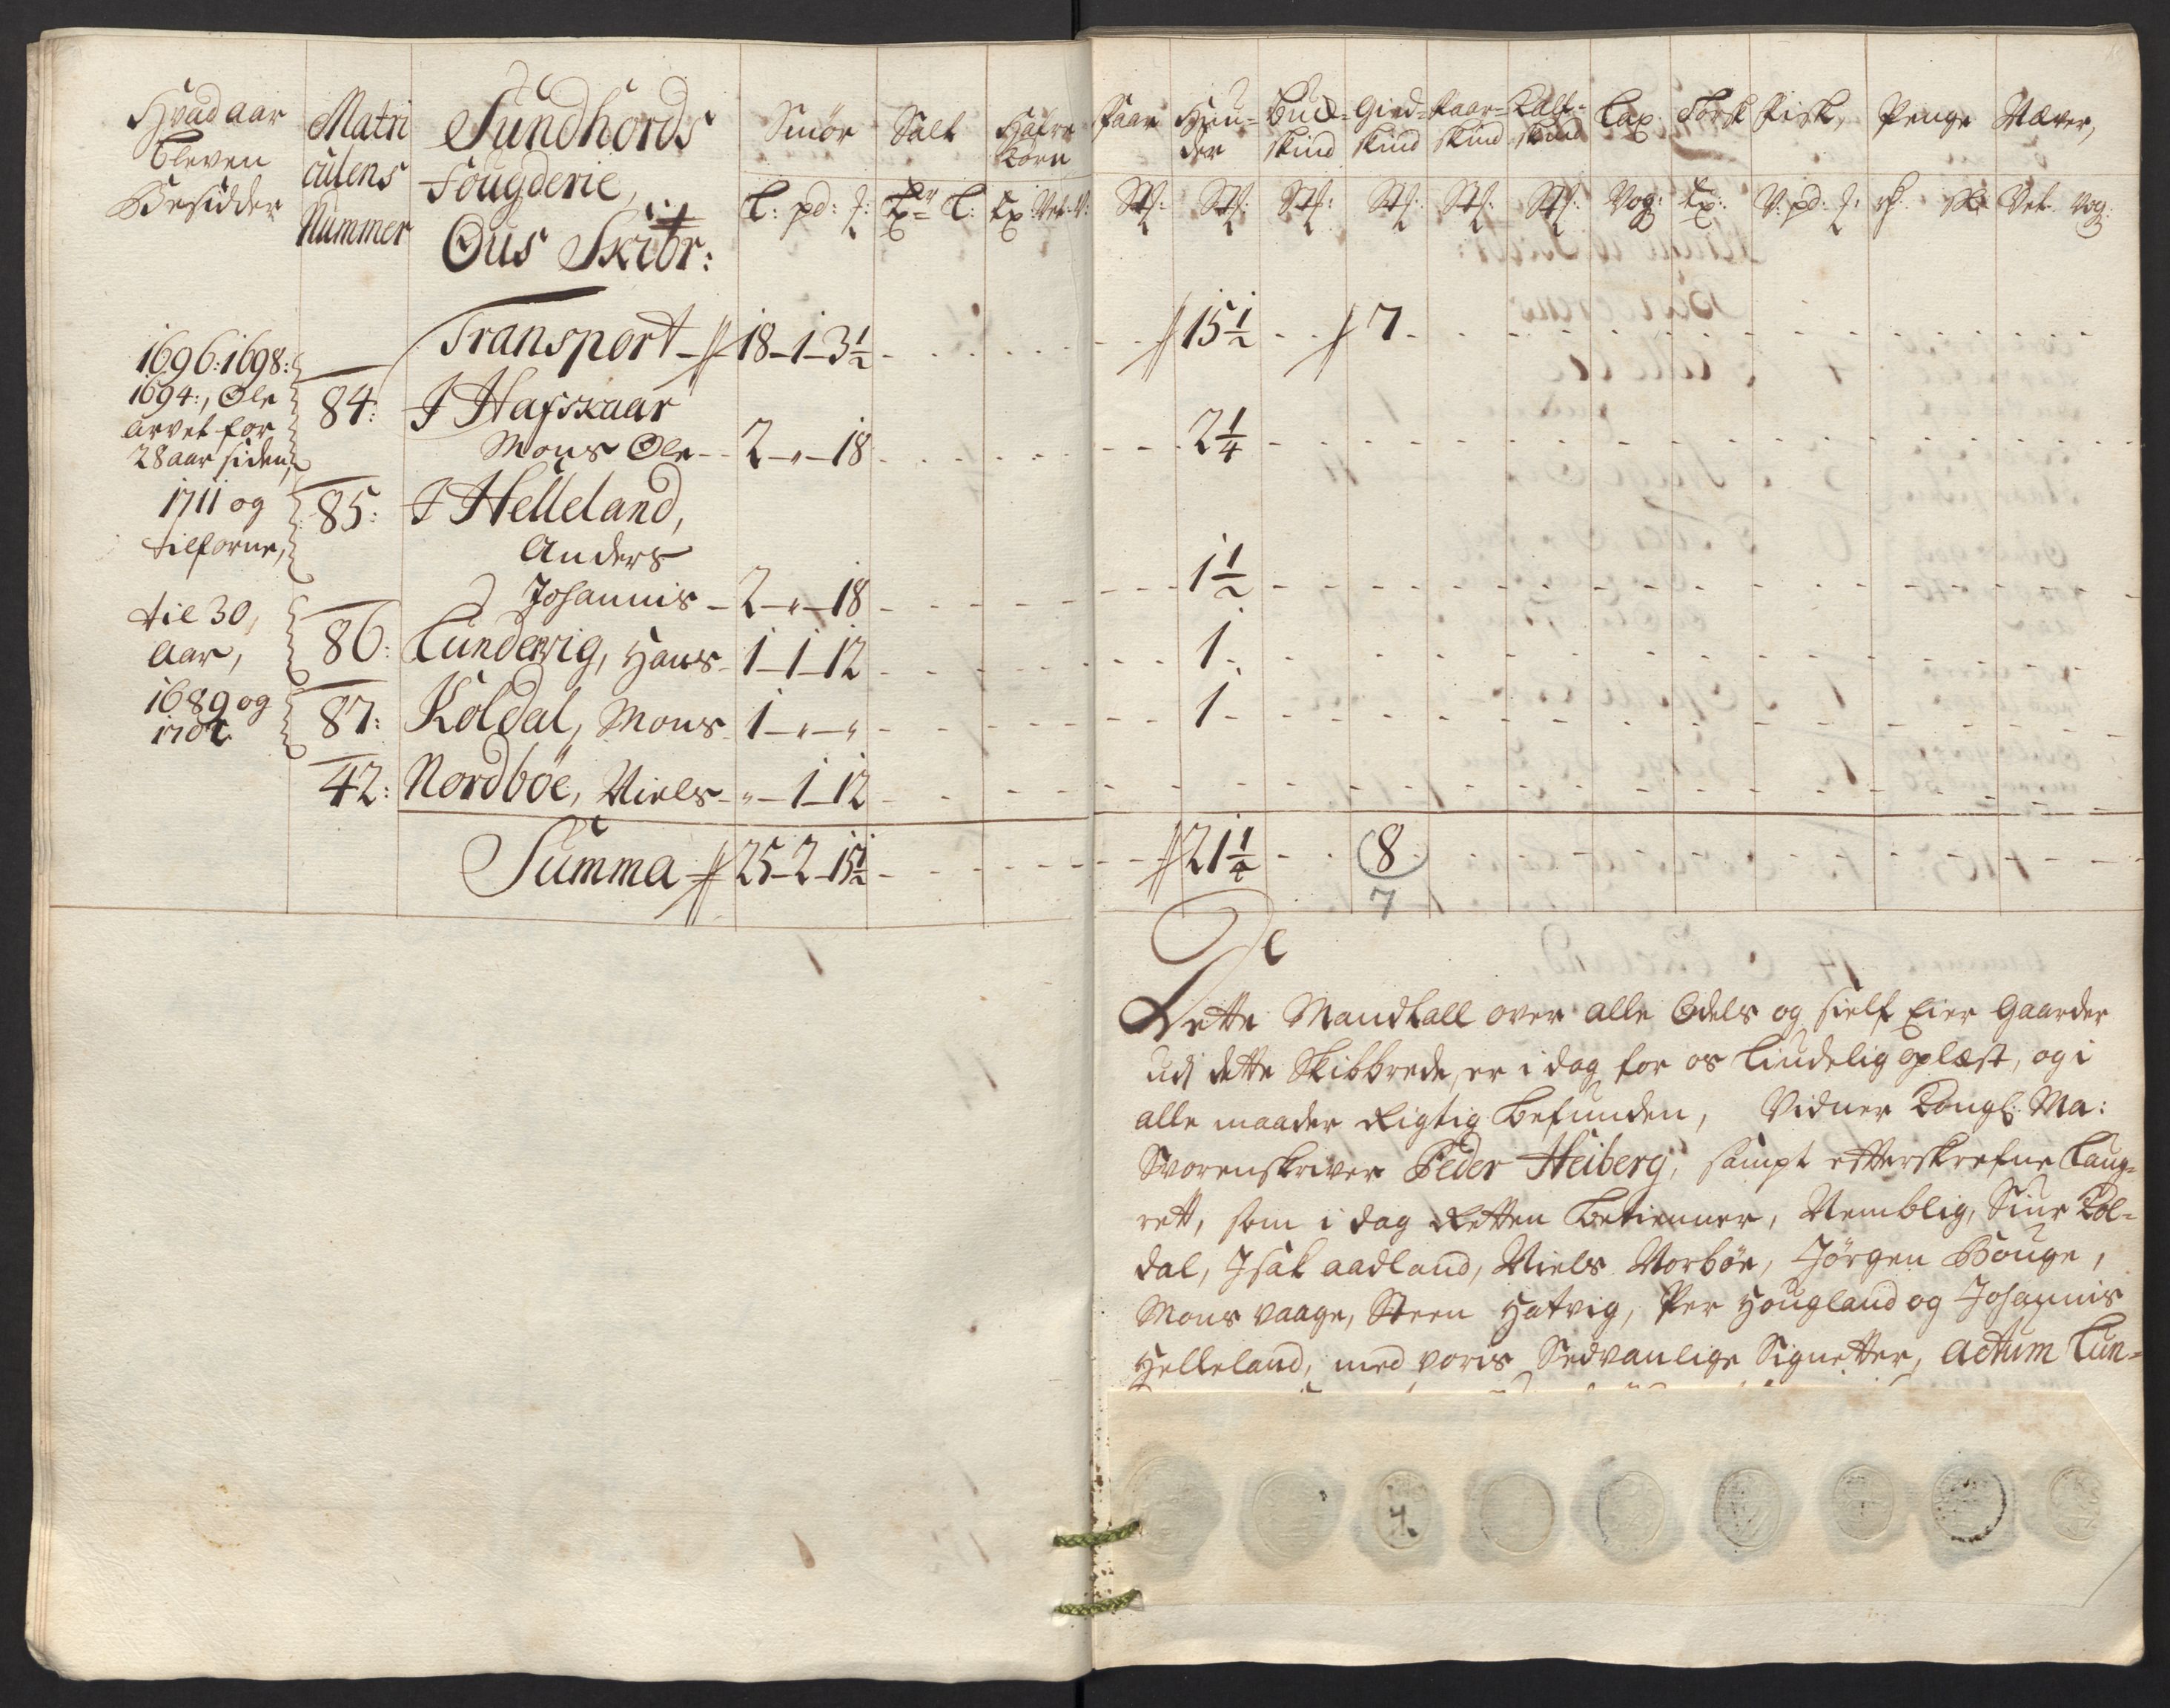 Hvad aar
bleven
Besidder
Matri
culens
Nummer
Sundhords
Fougderie,
Ous Skibr:
Smör
Salt
Hafre
Korn
L: pd: Tr L: Tr: Vet: V:
Faar
Huu-
der
Buck-
skind
Gied-
skind
Faar-
skind
Kalf-
skind
Lax
Torsk
Fisk,
Penge
Næver,
Stk: Stk: Stk: Stk: Stk: Stk: Vog: V: pd: Vet. Vog:
Transport - 18-1-3½ 15½ 7
1696: 1698:
1694:, Ole
arvet for
28 aar siden,
84: J Hafskaar
Mons Ole - 2-"-18 2¼
1711 og
tilforne,
85: J Helleland,
Anders
Johannis - 2-"-18 1½
til 30,
aar,
86: Lundervig, Hans - 1-1-12 1
1689 og
87: Koldal, Mons - 1-"-" 1
42: Nordböe, Niels - "-1-12
Summa 25-2-15½ 21¼ 8
7
Dette Mandtall over alle Odels og sielf Eier Gaarder
udi dette Skibbrede, er i dag for os liudelig oplæst, og i
alle maader Rigtig befunden, Vidner Kongl: Ma:
Svorenskriver Peder Heiberg, sampt etterskrefne Laug-
rett, som i dag Retten betienner, Nemblig, Siur Kol-
dal, Isak aadland, Niels Norböe, Jörgen Houge,
Mons vaage, Steen Hatvig, Per Hougland og Johannis
Helleland, med voris Sedvanlige Signetter, Actum Lun-